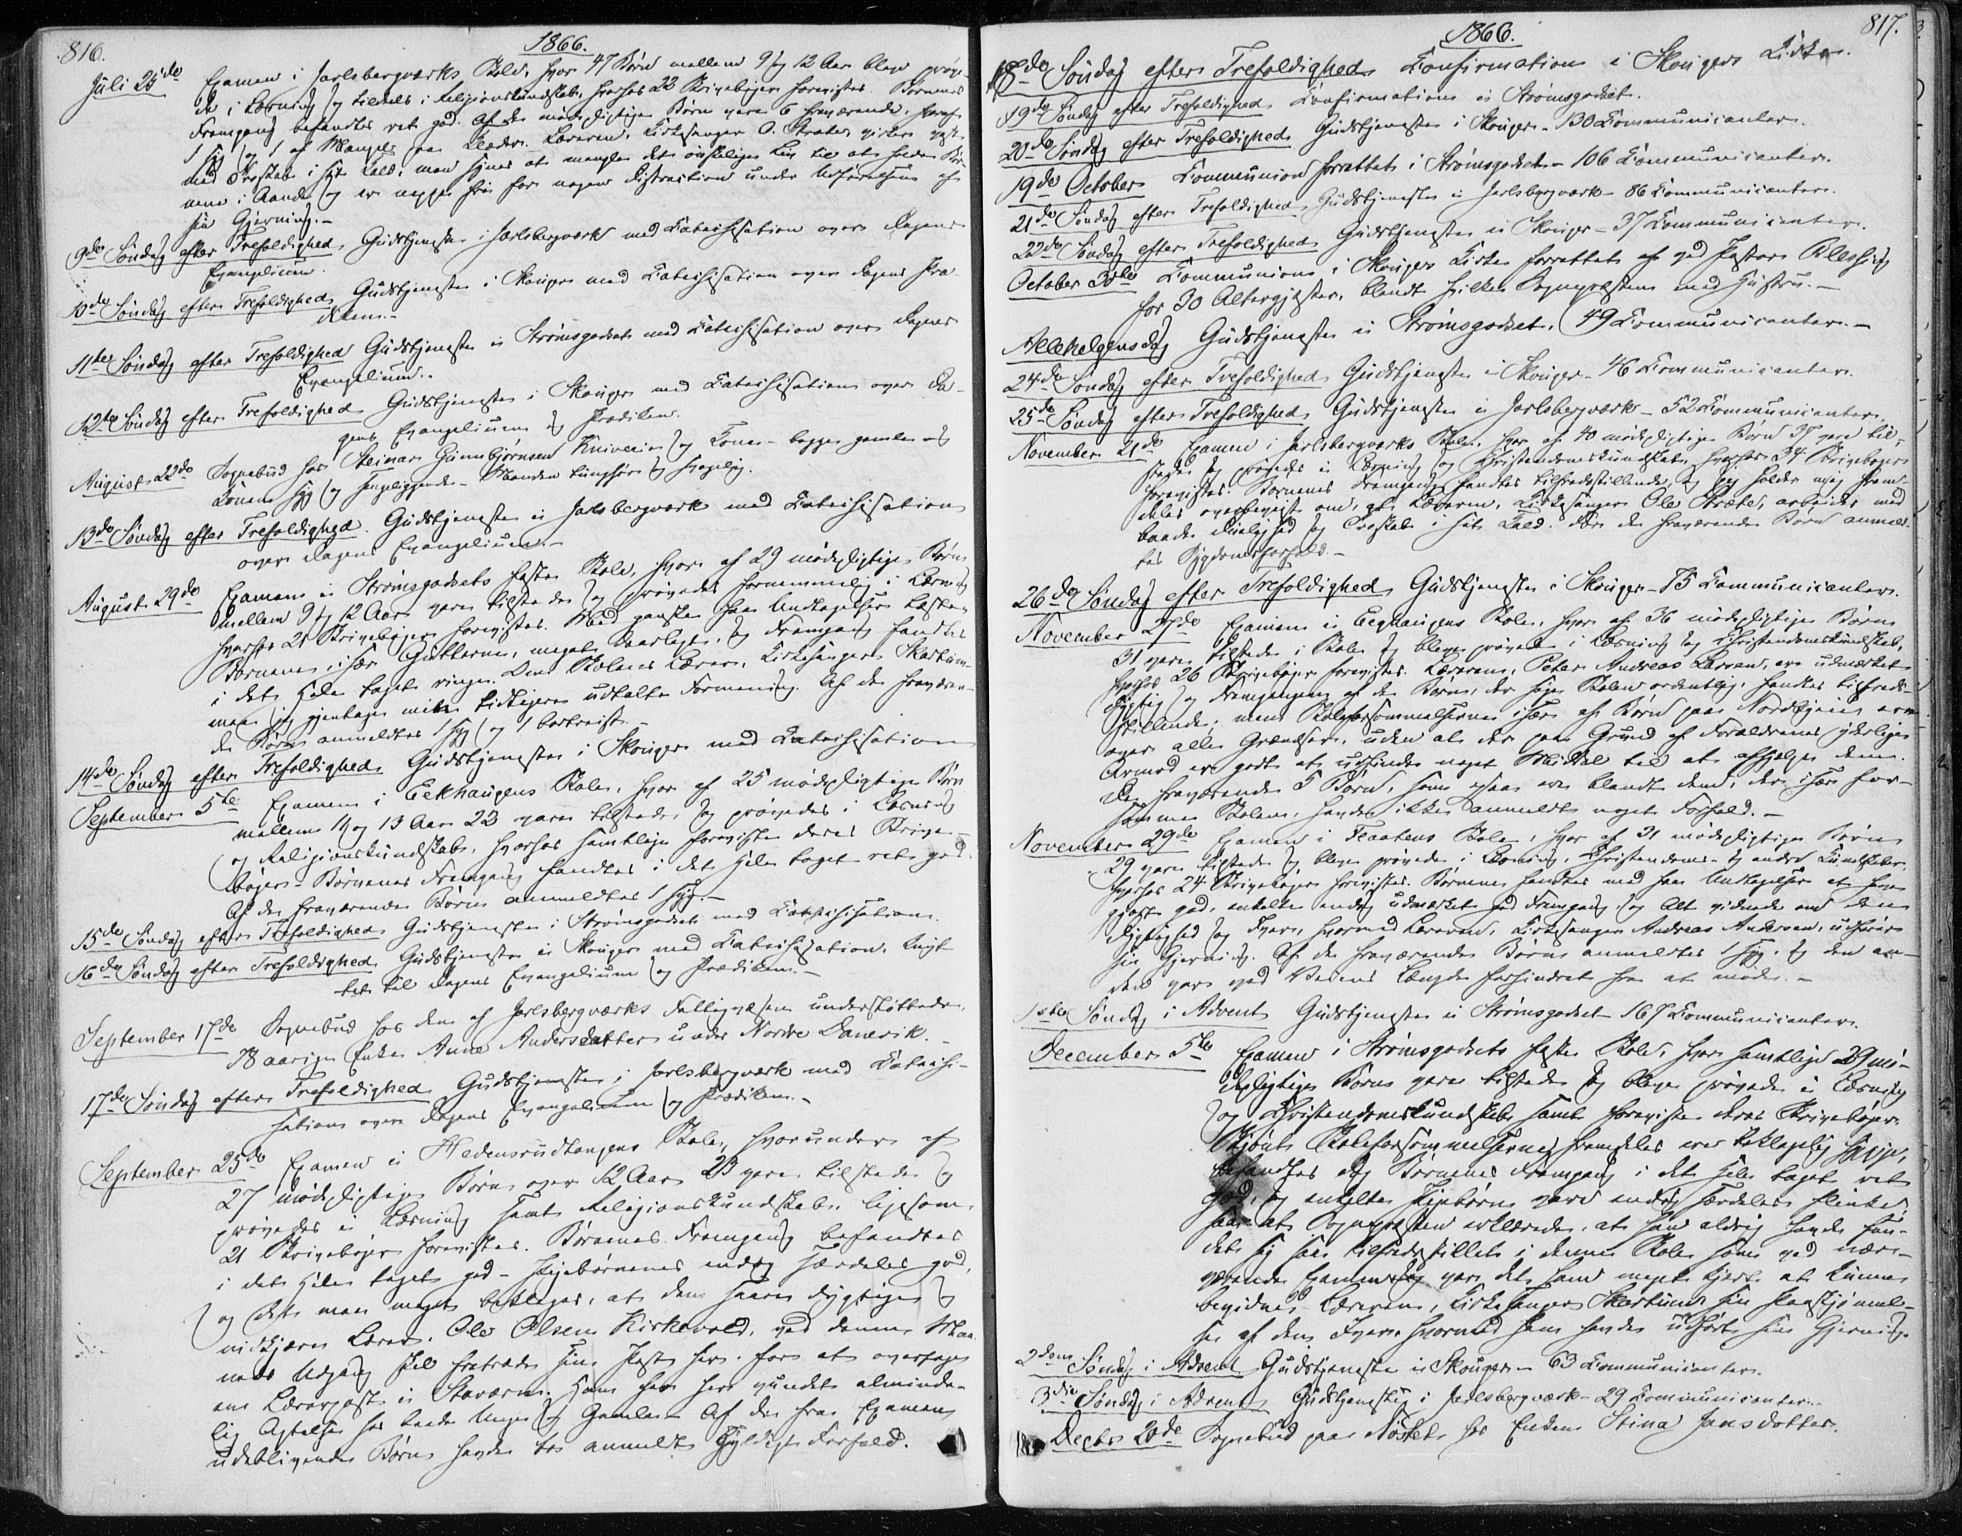 816.
1866.
Juli 25de Examen i Jarlsbergværks Skole, hvor 47 Børn mellem 9 og 12 Aar bleve prøve-
de i Læsning og tildels i Religionskundskab, hvorhos 22 Skrivebøger forevistes. Børnenes
Fremgang befandtes ret god. Af de mødepligtige Børn vare 6 fraværende,
1 syg og 1 af Mangel paa Klæder. Læreren, Kirkesanger O. Stræte, virker
med Troskab i sit Kald, men synes at mangle det ønskelige Liv til at
nene i Aande og er neppe fri for nogen Distraction under Udførelsen af
sin Gjerning.-
9de Søndag efter Trefoldighed Gudstjeneste i Jarlsbergværk med Katechisation over Dagens
Evangelium.
10de Søndag efter Trefoldighed Gudstjeneste i Skouger med Katechisation over Dagens Præ-
diken.-
11te Søndag efter Trefoldighed Gudstjeneste i Strømsgodset med Katechisation over Dagens
Evangelium.
12te Søndag efter Trefoldighed Gudstjeneste i Skouger med Katechisation over Da-
gens Evangelium og Prædiken.
August 22de Sognebud hos Steinar Gunnbjørnsen Kniveien og Kone - begge gamle og
Konen syg og sengeliggende - Manden tunghør og svagelig.
13de Søndag efter Trefoldighed. Gudstjeneste i Jarlsbergværk med Katechisation
over Dagens Evangelium.-
August 29de Examen i Strømsgodsets faste Skole, hvor af 29 mødepligtige Børn
mellem 9 og 12 Aar vare tilstede og prøvedes fornemmelig i Læsning
hvorhos 21 Skrivebøger forevistes. Med ganske faa Undtagelser læste
Børnene, især Gutterne, meget daarligt, og Fremgang fandtes
i det Hele taget ringe. Om Skolens Lærer, Kirkesanger Skarlund
maa jeg gjentage min tidligere udtalte Formening. Af de fraværen-
de Børn anmeldtes 1 syg og 1 bortreist.-
14de Søndag efter Trefoldighed. Gudstjeneste i Skouger med Katechisation
September 5te Examen i Eekhaugens Skole, hvor af 25 mødepligtige Børn
mellem 11 og 13 Aar 22 vare tilstede og prøvedes i Læsning
og Religionskundskab, hvorhos samtlige foreviste deres Skrive-
bøger. Børnenes Fremgang fandtes i det Hele taget ret god.
Af de fraværende Børn anmeldtes 1 syg.-
15de Søndag efter Trefoldighed Gudstjeneste i Strømsgodset med Katechisation.
16de Søndag efter Trefoldighed Gudstjeneste i Skouger med Katechisation, knyt-
tet til Dagens Evangelium og Prædiken.-
September 17de Sognebud hos den af Jarlsbergværks Fattigvæsen understøttede
78 aarige Enke Anne Andersdatter under Nordre Danevik.-
17de Søndag efter Trefoldighed Gudstjeneste i Jarlsbergværk med Katechi-
sation over Dagens Evangelium og Prædiken.-
September 25de Examen i Hedensrudtangens Skole, hvorunder af
27 mødepligtige Børn over 12 Aar 23 vare tilstede og
prøvedes i Læsning samt Religionskundskab, ligesom
21 Skrivebøger forevistes. Børnenes Fremgang befandtes
i det Hele taget god - Pigebørnenes endog særdeles god,
og det maa meget beklages, at den saare dygtige og
nidkjære Lærer, Ole Olsen Kirkevold, ved denne Maa-
neds Udgang skal fratræde sin Post her for at overtage
en Lærerpost i Stavern. Han har her vundet alminde-
lig Agtelse hos baade Unge og Gamle. Af de fra Examen
udeblivende Børn havde to anmeldt gyldigt Forfald.
1866.
817.
18de Søndag efter Trefoldighed Confirmation i Skouger Kirke.
19de Søndag efter Trefoldighed Confirmation i Strømsgodset.
20de Søndag efter Trefoldighed Gudstjeneste i Skouger - 130 Communicanter.
19de October Communion forrettet i Strømsgodset - 106 Communicanter.
21de Søndag efter Trefoldighed Gudstjeneste i Jarlsbergværk - 86 Communicanter.
22de Søndag efter Trefoldighed Gudstjeneste i Skouger - 37 Communicanter.
October 30te Communion i Skouger Kirke forrettet af ved Pastor Blessing
for 30 Altergjæster, blandt hvilke Sognepræsten med Hustru.-
Allehelgensdag Gudstjeneste i Strømsgodset. (49 Communicanter.-
24de Søndag efter Trefoldighed Gudstjeneste i Skouger - 46 Communicanter.
25de Søndag efter Trefoldighed Gudstjeneste i Jarlsbergværk - 52 Communicanter.
November 21de Examen i Jarlsbergværks Skole, hvor af 40 mødepligtige Børn 37 vare til-
stede og prøvedes i Læsning og Christendomskundskab, hvorhos 34 Skrivebøger
forevistes. Børnenes Fremgang fandtes tilfredsstillende, og jeg holder mig frem-
deles overbevist om, at Læreren, Kirkesanger Ole Stræte, arbeider med
baade Duelighed og Troskab i sit Kald. For de fraværende Børn anmeld-
tes Sygdomsforfald.-
26de Søndag efter Trefoldighed Gudstjeneste i Skouger - 75 Communicanter.
November 27de Examen i Eeghaugens Skole, hvor af 36 mødepligtige Børn
31 vare tilstede i Skole og bleve prøvede i Læsning og Christendomskundskab,
hvorhos 26 Skrivebøger forevistes. Læreren, Peter Andreas Larsen, er udmærket
dygtig og Fremgangen af de Børn, der søge Skolen ordentlig, fandtes tilfreds-
stillende; men Skoleforsømmelserne især af Børn paa Nordbyeie ere
over alle Grændser, uden at der paa Grund af Forældrenes yderlige
Armod er godt at udfinde noget Middel til at afhjelpe dem.
De fraværende 5 Børn, som ogsaa ere blandt dem, der især for-
sømme Skolen, havde ikke anmeldt noget Forfald.-
November 29de Examen i Flaatens Skole, hvor af 31 mødepligtige Børn
29 vare tilstede og bleve prøvede i Læsning, Christendoms- og andre Kundskaber,
hvorhos 24 Skrivebøger forevistes. Børnene fandtes med faa Undtagelser at have
gjort god, enkelte endog udmærket god Fremgang, og Alt vidnede om den
Dygtighed og Iver, hvormed Læreren, Kirkesanger Andreas Andersen, udfører
sin Gjerning. Af de fraværende Børn anmeldtes 1 syg, og den an-
den var ved Veiens Længde forhindret fra at møde.-
1ste Søndag i Advent Gudstjeneste i Strømsgodset - 167 Communicanter.
December 5te Examen i Strømsgodsets faste Skole, hvor samtlige 29 mø-
depligtige Børn vare tilstede og bleve prøvede i Læsning
og Christendomskundskab samt foreviste deres Skrivebøger.
Skjønt Skoleforsømmelserne fremdeles ere beklagelig hyppige,
befandtes dog Børnenes Fremgang i det Hele taget ret
god, og enkelte Pigebørn vare endog særdeles flinke,
saa at Sognepræsten erklærede, at han aldrig havde fun-
det sig saa tilfredsstillet i denne Skole som ved nær-
værende Examen, og var det ham meget kjært at kunne
bevidne Læreren, Kirkesanger Skarlund sin Paaskjønnel-
se af den Iver, hvormed han havde udført sin Gjerning.
2den Søndag i Advent Gudstjeneste i Skouger - 63 Communicanter.
3die Søndag i Advent Gudstjeneste i Jarlsbergværk - 29 Communicanter.
Decbr 20de Sognebud paa Nøstet hos Enken Stina Jansdatter.